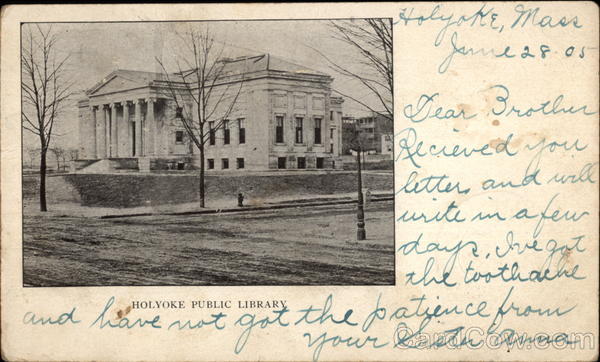 Holyoke, Mass
June 28-05
Dear Brother
Recieved you
letter and will
write in a few
days, I've got
the toothache
and have not got the patience from
Your Sister Anna
HOLYOKE PUBLIC LIBRARY
CardCow.com